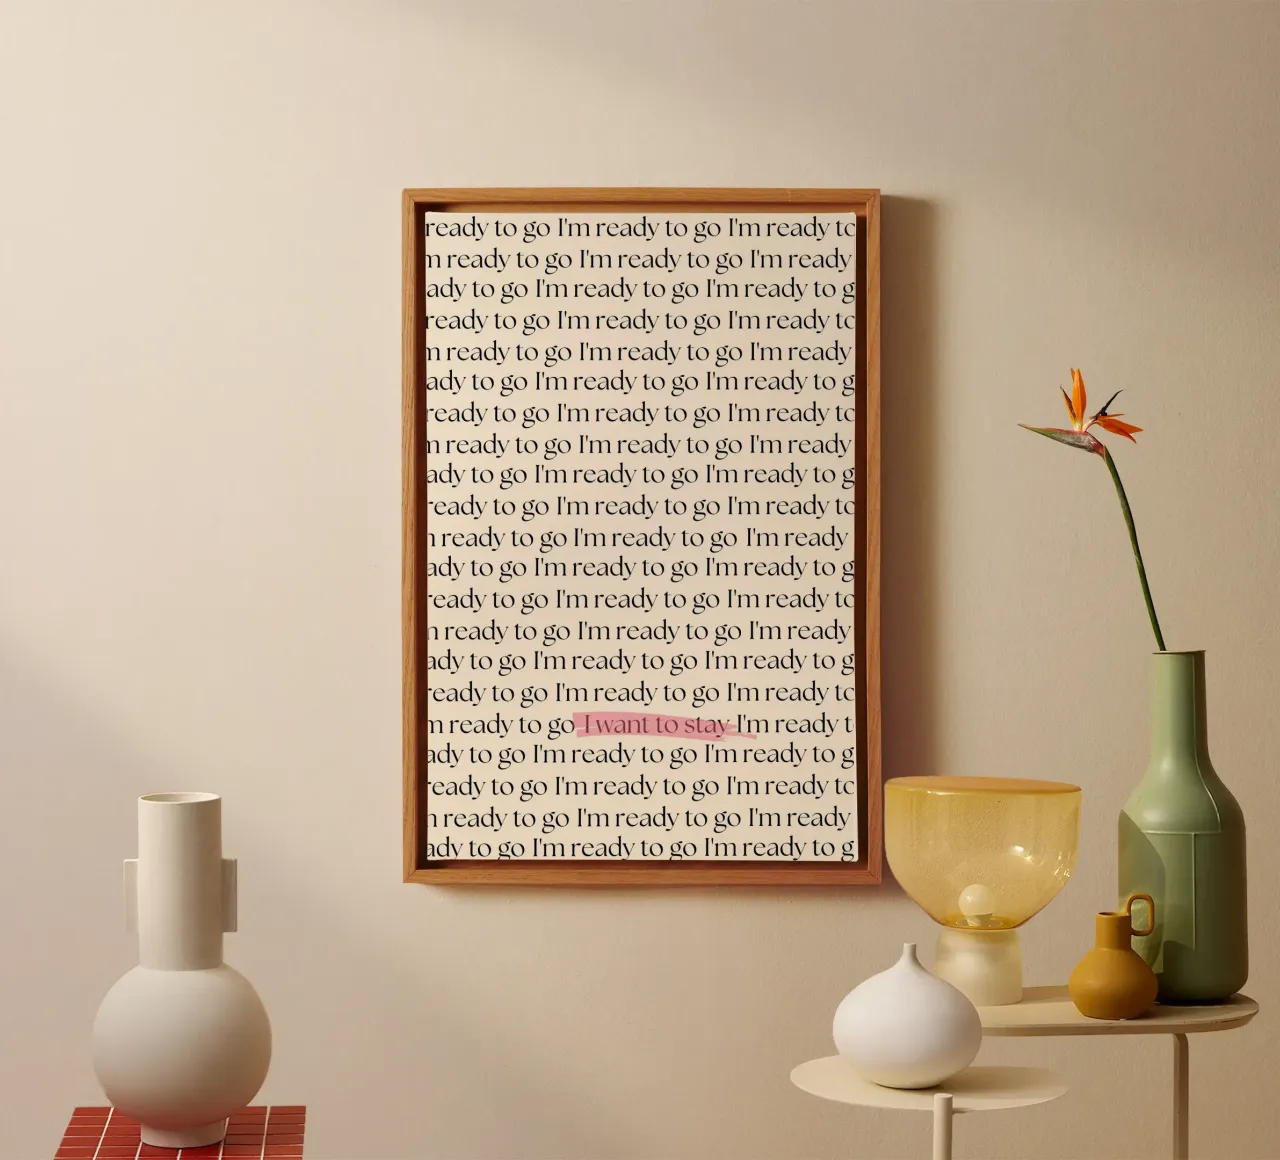 ready to go I'm ready to go I'm ready to
m ready to go I'm ready to go I'm ready
ady to go I'm ready to go I'm ready to g
ready to go I'm ready to go I'm ready to
m ready to go I'm ready to go I'm ready
ady to go I'm ready to go I'm ready to g
ready to go I'm ready to go I'm ready to
m ready to go I'm ready to go I'm ready
ady to go I'm ready to go I'm ready to g
ready to go I'm ready to go I'm ready to
m ready to go I'm ready to go I'm ready
ady to go I'm ready to go I'm ready to g
ready to go I'm ready to go I'm ready to
m ready to go I'm ready to go I'm ready
ady to go I'm ready to go I'm ready to g
ready to go I'm ready to go I'm ready to
m ready to go I want to stay I'm ready t
ady to go I'm ready to go I'm ready to g
ready to go I'm ready to go I'm ready to
m ready to go I'm ready to go I'm ready
ady to go I'm ready to go I'm ready to g